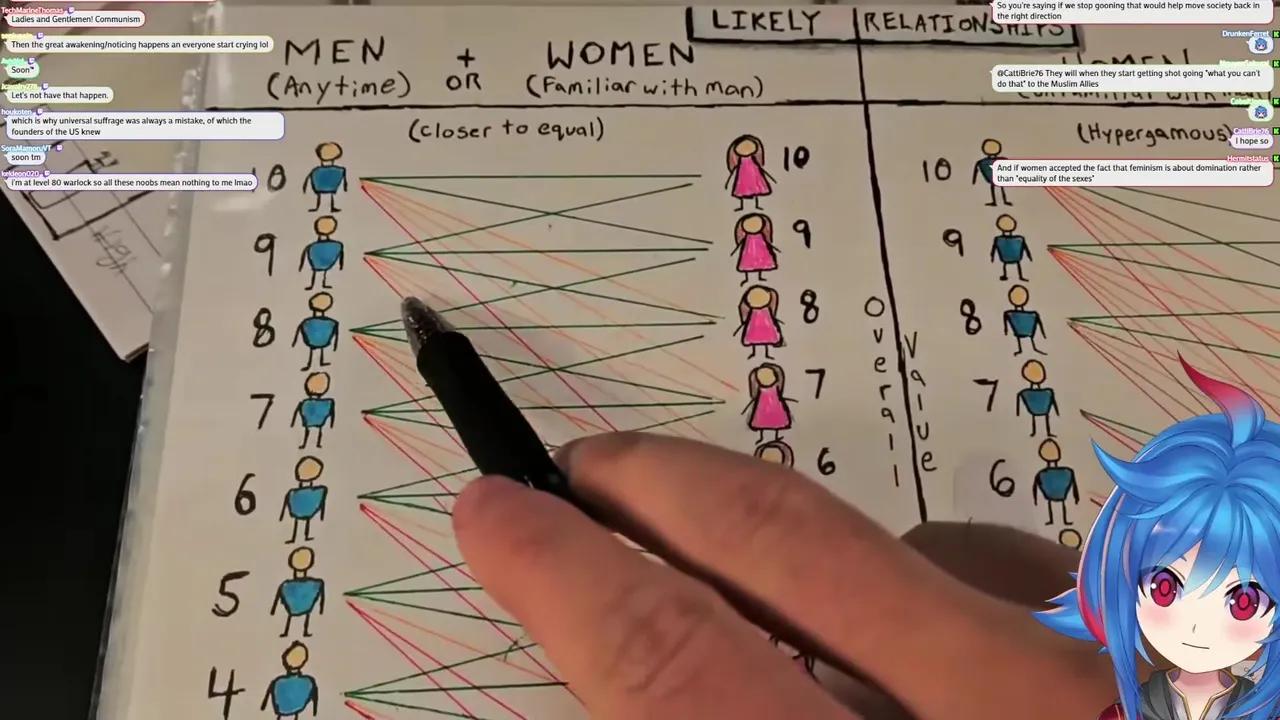 TechMarineThomas
Ladies and Gentlemen! Communism
Then the great awakening/noticing happens an everyone start crying lol
Soon™
Let's not have that happen.
houksten
which is why universal suffrage was always a mistake, of which the
founders of the US knew
SoraMamoruVT
soon tm
kekleon020
i'm at level 80 warlock so all these noobs mean nothing to me lmao
So you're saying if we stop gooning that would help move society back in
the right direction
DrunkenFerret
@CattiBrie76 They will when they start getting shot going "what you can't
do that" to the Muslim Allies
CattiBrie76
I hope so
Hermitstatus
And if women accepted the fact that feminism is about domination rather
than "equality of the sexes"
LIKELY RELATIONSHIPS
MEN + OR WOMEN
(Anytime) (Familiar with man)
(closer to equal)
(Hypergamous)
10 10 10
9 9 9
8 8 8
7 7 7
6 6 6
5
4
Overall
Value